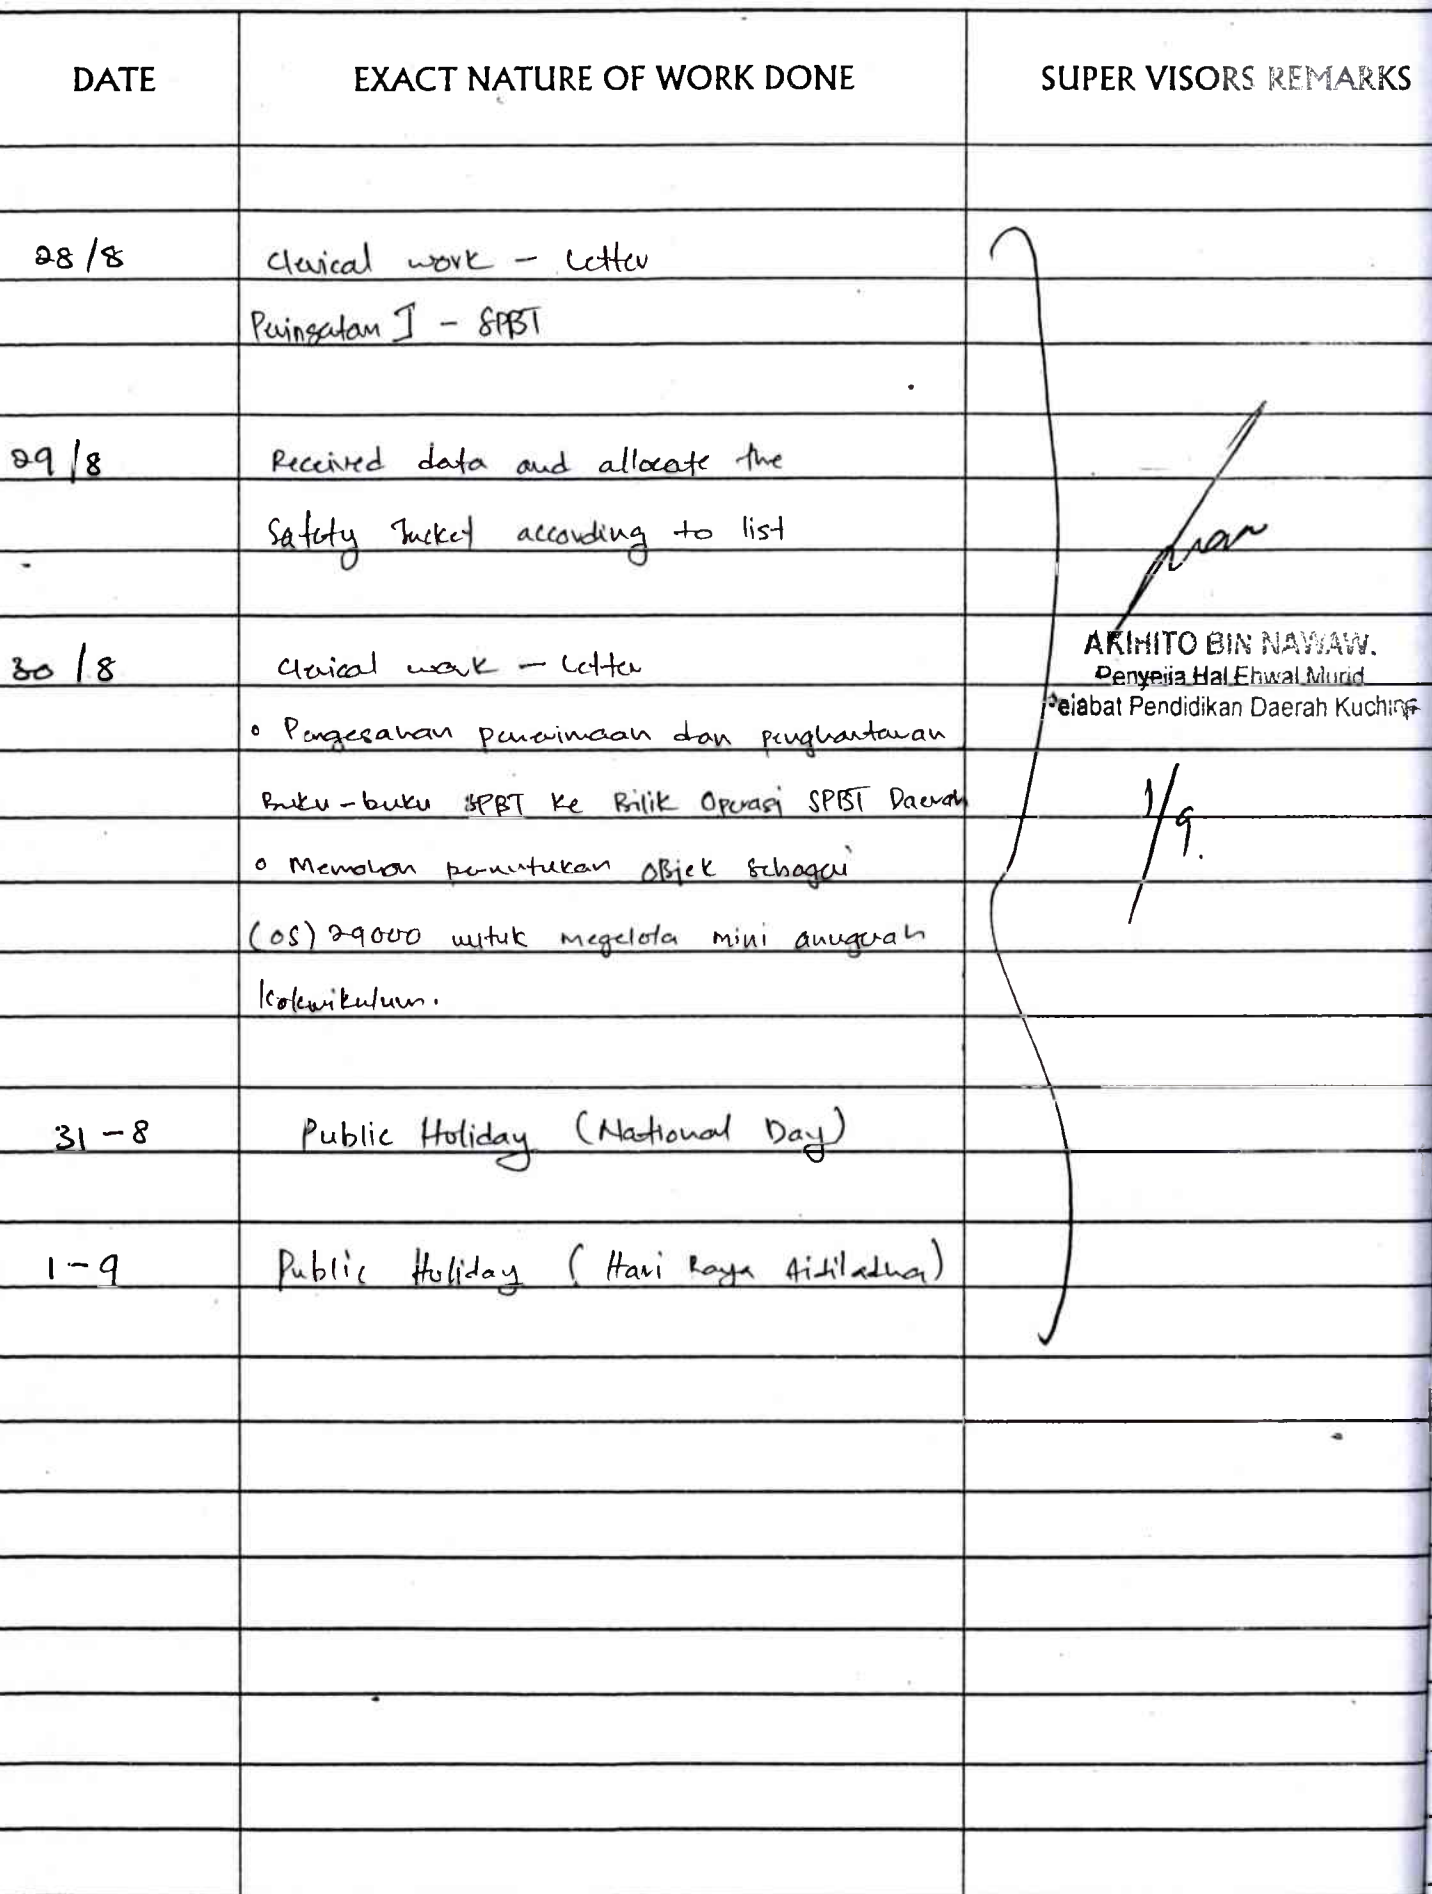 DATE EXACT NATURE OF WORK DONE SUPER VISORS REMARKS
28/8 Clerical work - Letter
Peringatan I - SPBT
29/8 Received data and allocate the
Safety Jacket according to list
30/8 Clerical work - Letter
ARIHITO BIN NAWAW.
Penyelia Hal Ehwal Murid
Pejabat Pendidikan Daerah Kuching
• Pengesahan penerimaan dan penghantaran
Buku-buku SPBT ke Bilik Operasi SPBT Daerah
1/9.
• Memohon peruntukan Objek Sebagai
(OS) 29000 untuk megelola mini anugerah
Kokurikulum.
31-8 Public Holiday (National Day)
1-9 Public Holiday (Hari Raya Aidiladha)